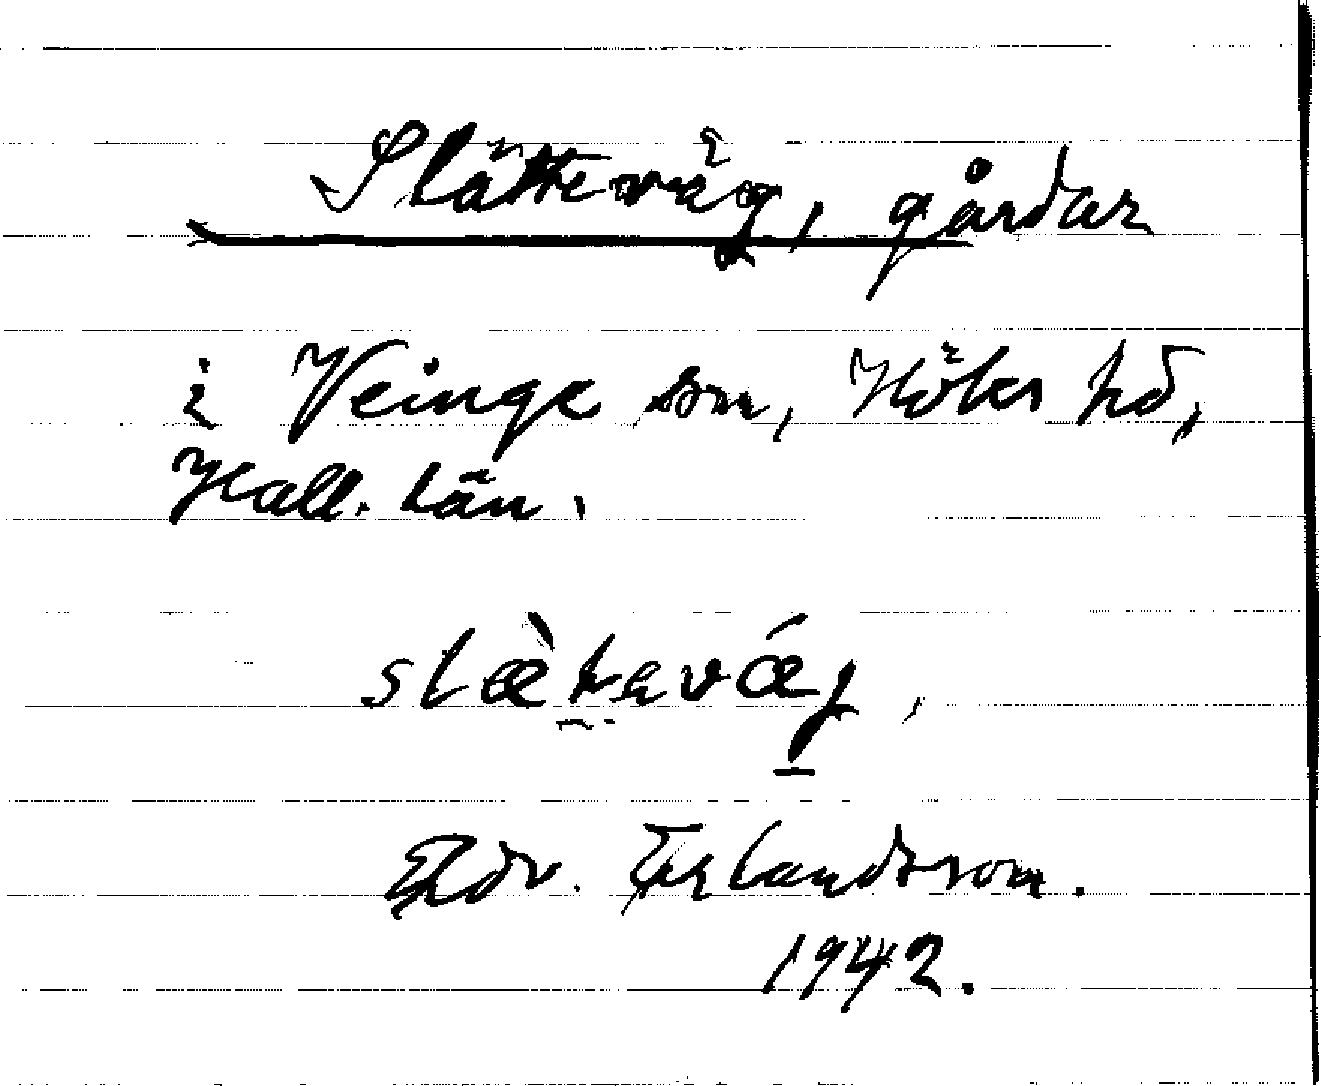 Slätteväg, gårdar
i Veinge sn, Höks hd,
Hall. län.
slæ̀tavǽg,
Edv. Erlandsson.
1942.